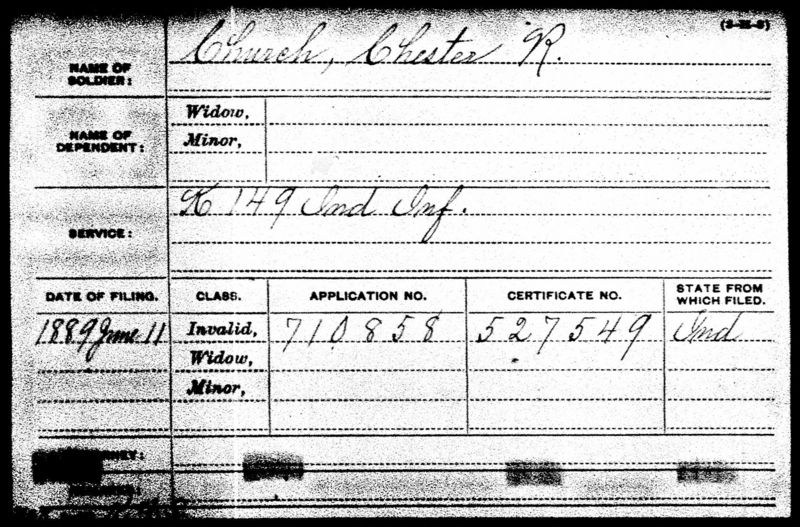 (3-M-6)
NAME OF SOLDIER: Church, Chester R.
NAME OF DEPENDENT: Widow,
Minor,
SERVICE: K 149 Ind Inf.
DATE OF FILING. CLASS. APPLICATION NO. CERTIFICATE NO. STATE FROM WHICH FILED.
1889 June 11 Invalid, 710858 527549 Ind
Widow,
Minor,